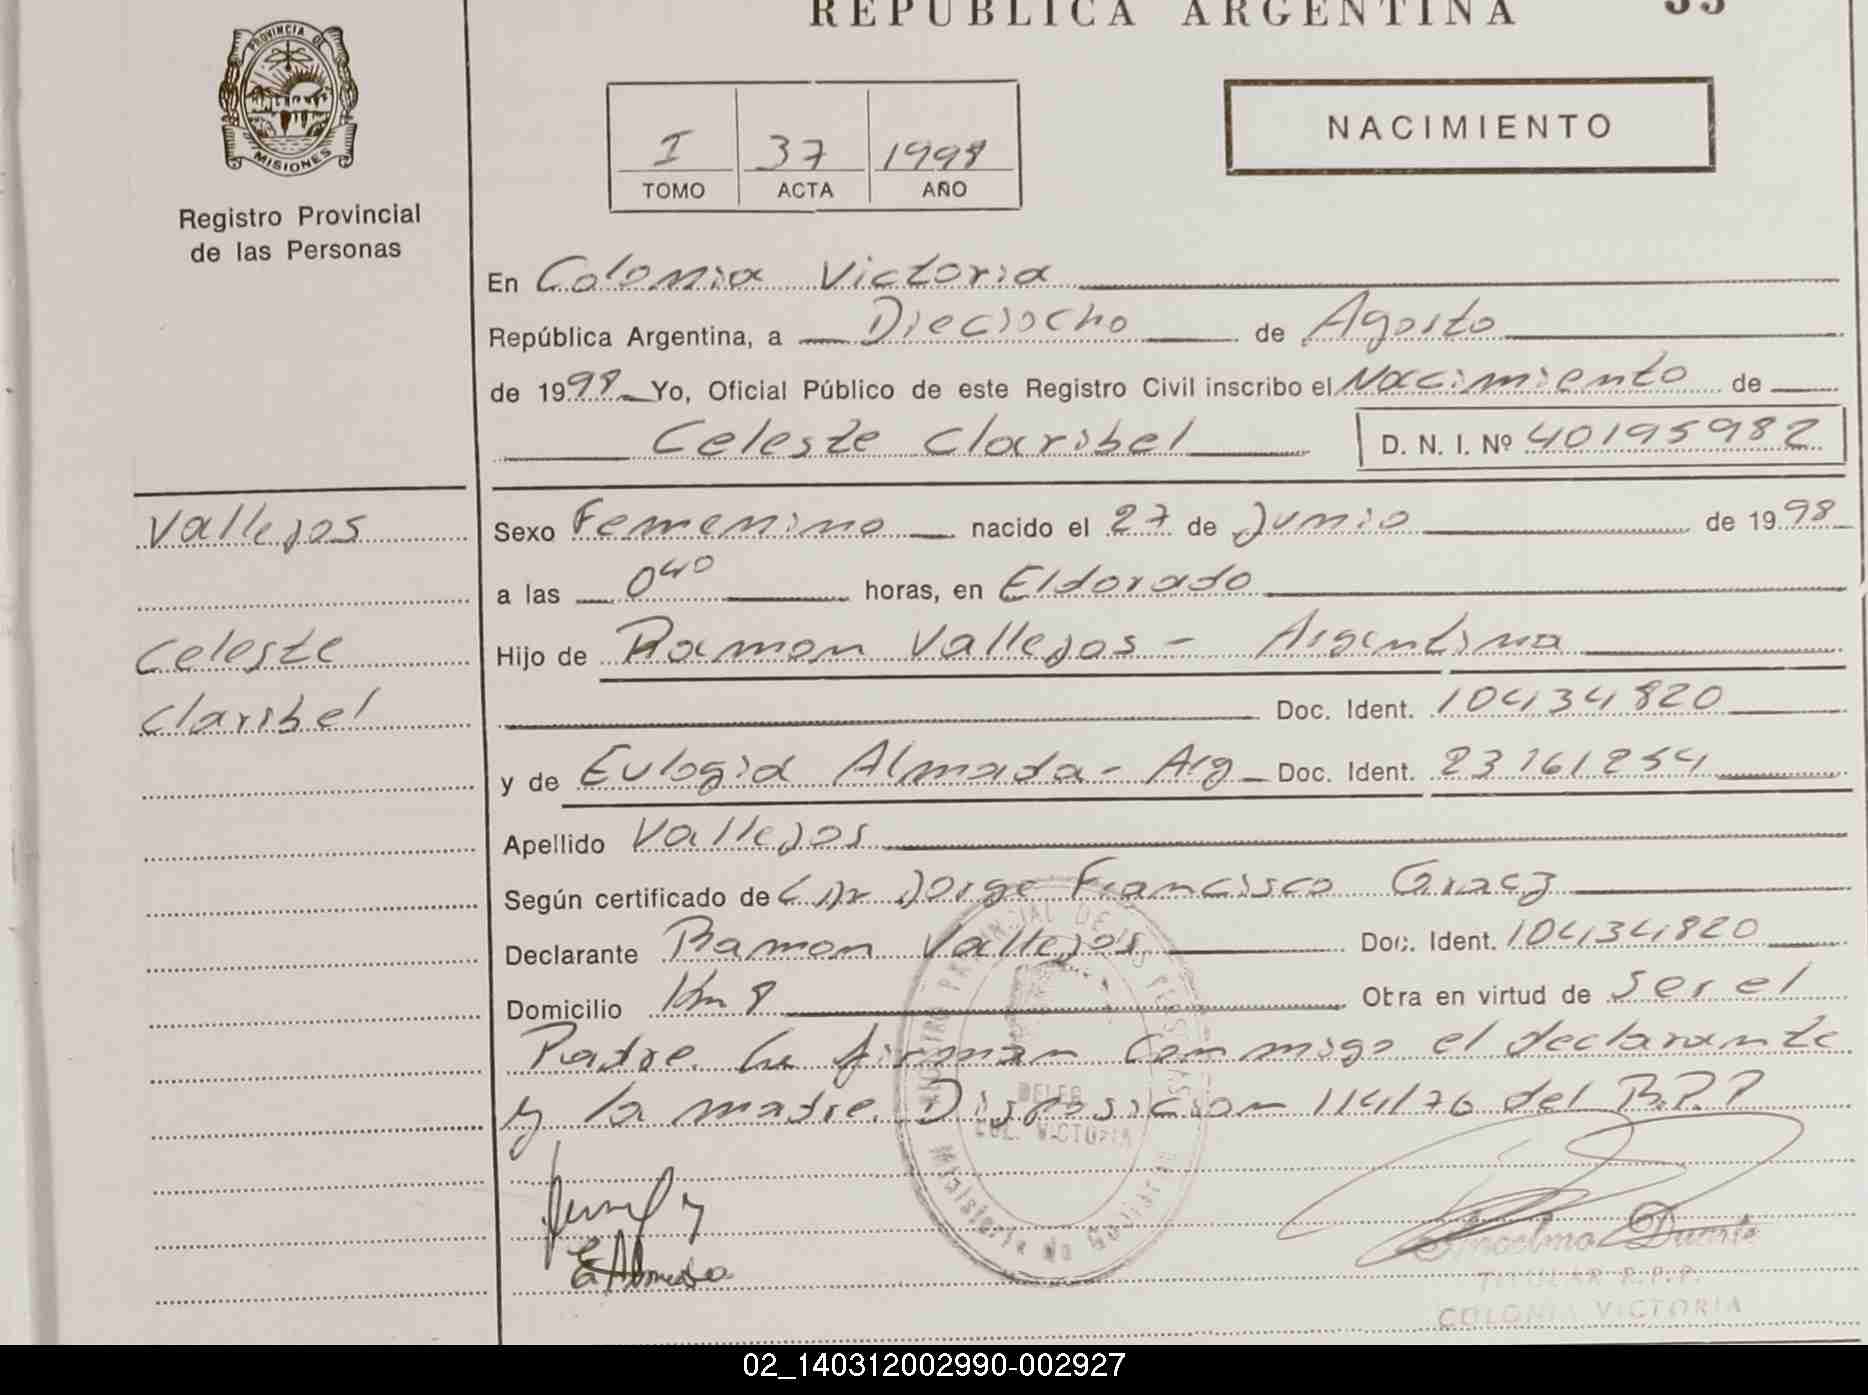 REPUBLICA ARGENTINA
PROVINCIA DE
MISIONES
Registro Provincial
de las Personas
NACIMIENTO
I 37 1998
TOMO ACTA AÑO
En Colonia Victoria
República Argentina, a Dieciocho de Agosto
de 1998 Yo, Oficial Público de este Registro Civil inscribo el Nacimiento de
Celeste Claribel D. N. I. Nº 40195982
Vallejos
Celeste
Claribel
Sexo Femenino nacido el 27 de Junio de 1998
a las 0 40 horas, en Eldorado
Hijo de Ramon Vallejos - Argentina
Doc. Ident. 10434820
y de Eulogia Almada - Arg Doc. Ident. 23161254
Apellido Vallejos
Según certificado de Dr Jorge Francisco
Declarante Ramon Vallejos Doc. Ident. 10434820
Domicilio Km 8 Otra en virtud de ser el
Padre. firman conmigo el declarante
y la madre. Disposicion 114/76 del R.P.P
REGISTRO PROVINCIAL DE LAS PERSONAS
DELEG.
COL. VICTORIA
Ministerio de Gobierno
E Almada
Anselmo Duarte
TITULAR R.P.P.
COLONIA VICTORIA
02_140312002990-002927